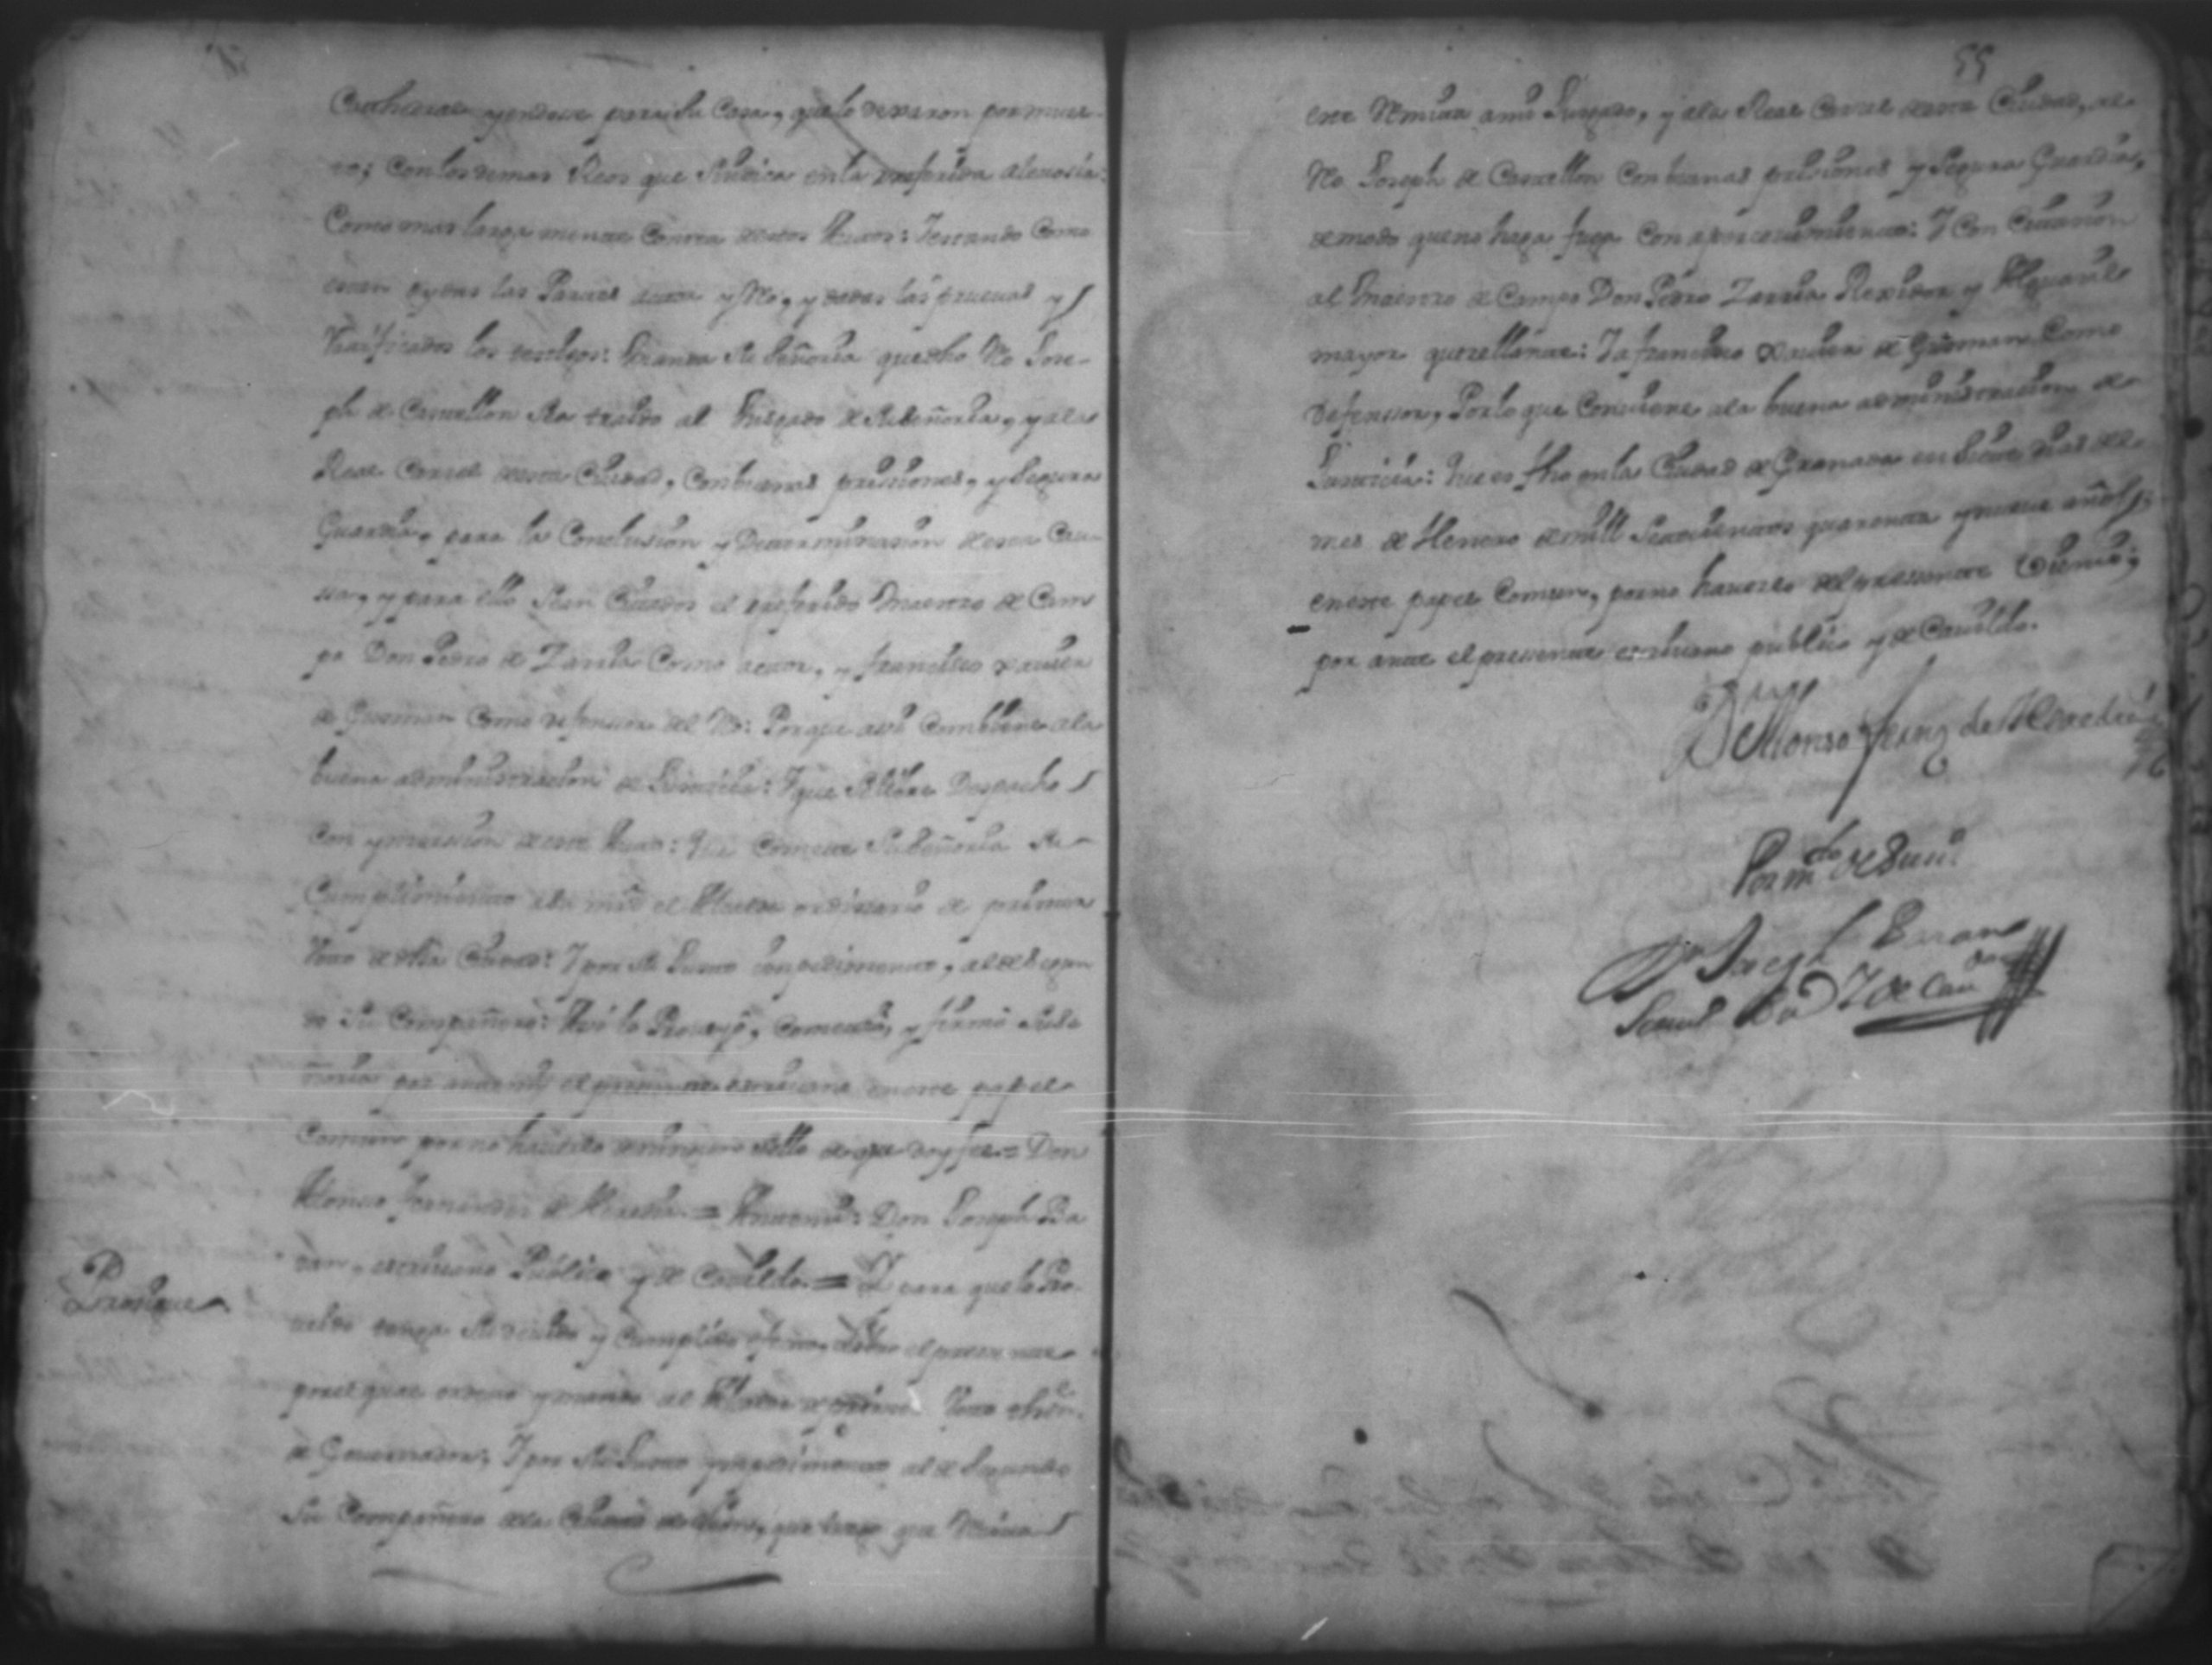 Cathedral yendose para su Casa, que lo dexaron por muer-
to; Con los demas Reos que Yndica en la referida alevosía:
Como mas larga mente Consta destos Autos: Yestando Como
estan oydas las Partes actor y Reo, y dadas las pruevas y
Ratificados los testigos: Manda Su Señoria que dho Reo Jose-
ph de Castellon Sea traido al Jusgado de Su Señoria, y a la
Real Carsel desta Ciudad, Con buenas prisiones, y Segura
Guardia, para la Conclusion y Determinasion desta Cau-
sa, y para ello Sean Citados el referido Maestro de Cam
po Don Pedro de Zarria Como actor, y francisco xavier
de Gusman Como defensor del Reo: Porque assi Combiene a la
buena administracion de Justicia: Y que Se libre Despacho
Con ynsersion deste Auto: Que Comete Su Señoria Su
Cumplimiento a la mrd el Alcalde ordinario de primer
Voto de dha Ciudad: Y por Su Justo Ympedimento, al de Segun
do Su Compañero: Assi lo Proveyó, Cometió, y firmó Su Se
ñoria por ante mi el presente escrivano en este papel
Comun por no haverlo de ningun Sello de que doy fee = Don
Alonso fernandes de Heredia = Ante mi: Don Joseph Ba
ran, escrivano Publico y de Cavildo. = Y para que lo Pro-
veido tenga Su devido y Cumplido efecto, libro el presente
por el qual ordeno y mando al Alcalde de primer Voto thên.
de Governador; Y por Su Justo ympedimento al de Segundo
Su Compañero de la Ciudad de Leon, que luego que Reciva
Prosigue
55
este Remitta a mi Jusgado, y a la Real Carsel desta Ciudad, al
Reo Joseph de Castellon Con buenas prisiones y Segura Guardia,
de modo que no haga fuga Con apercevimiento: Y Con Citasion
al Maestro de Campo Don Pedro Zarria Rexidor y Alguasil
mayor querellante: Y a francisco xavier de Gusman Como
defensor, Por lo que Conviene a la buena administracion de
Justicia: Que es fho en la Ciudad de Granada en Siete dias del
mes de Henero de mill Setecientos quarenta y nueve años;
en este papel Comun, por no haverlo del presente Vienio;
por ante el presente escrivano publico y de Cavildo.
Dn Alonso Fernz de Heredia
Por mdo de Su Sria
Dn Joseph Baran
Scriv Pco Y de Cavdo